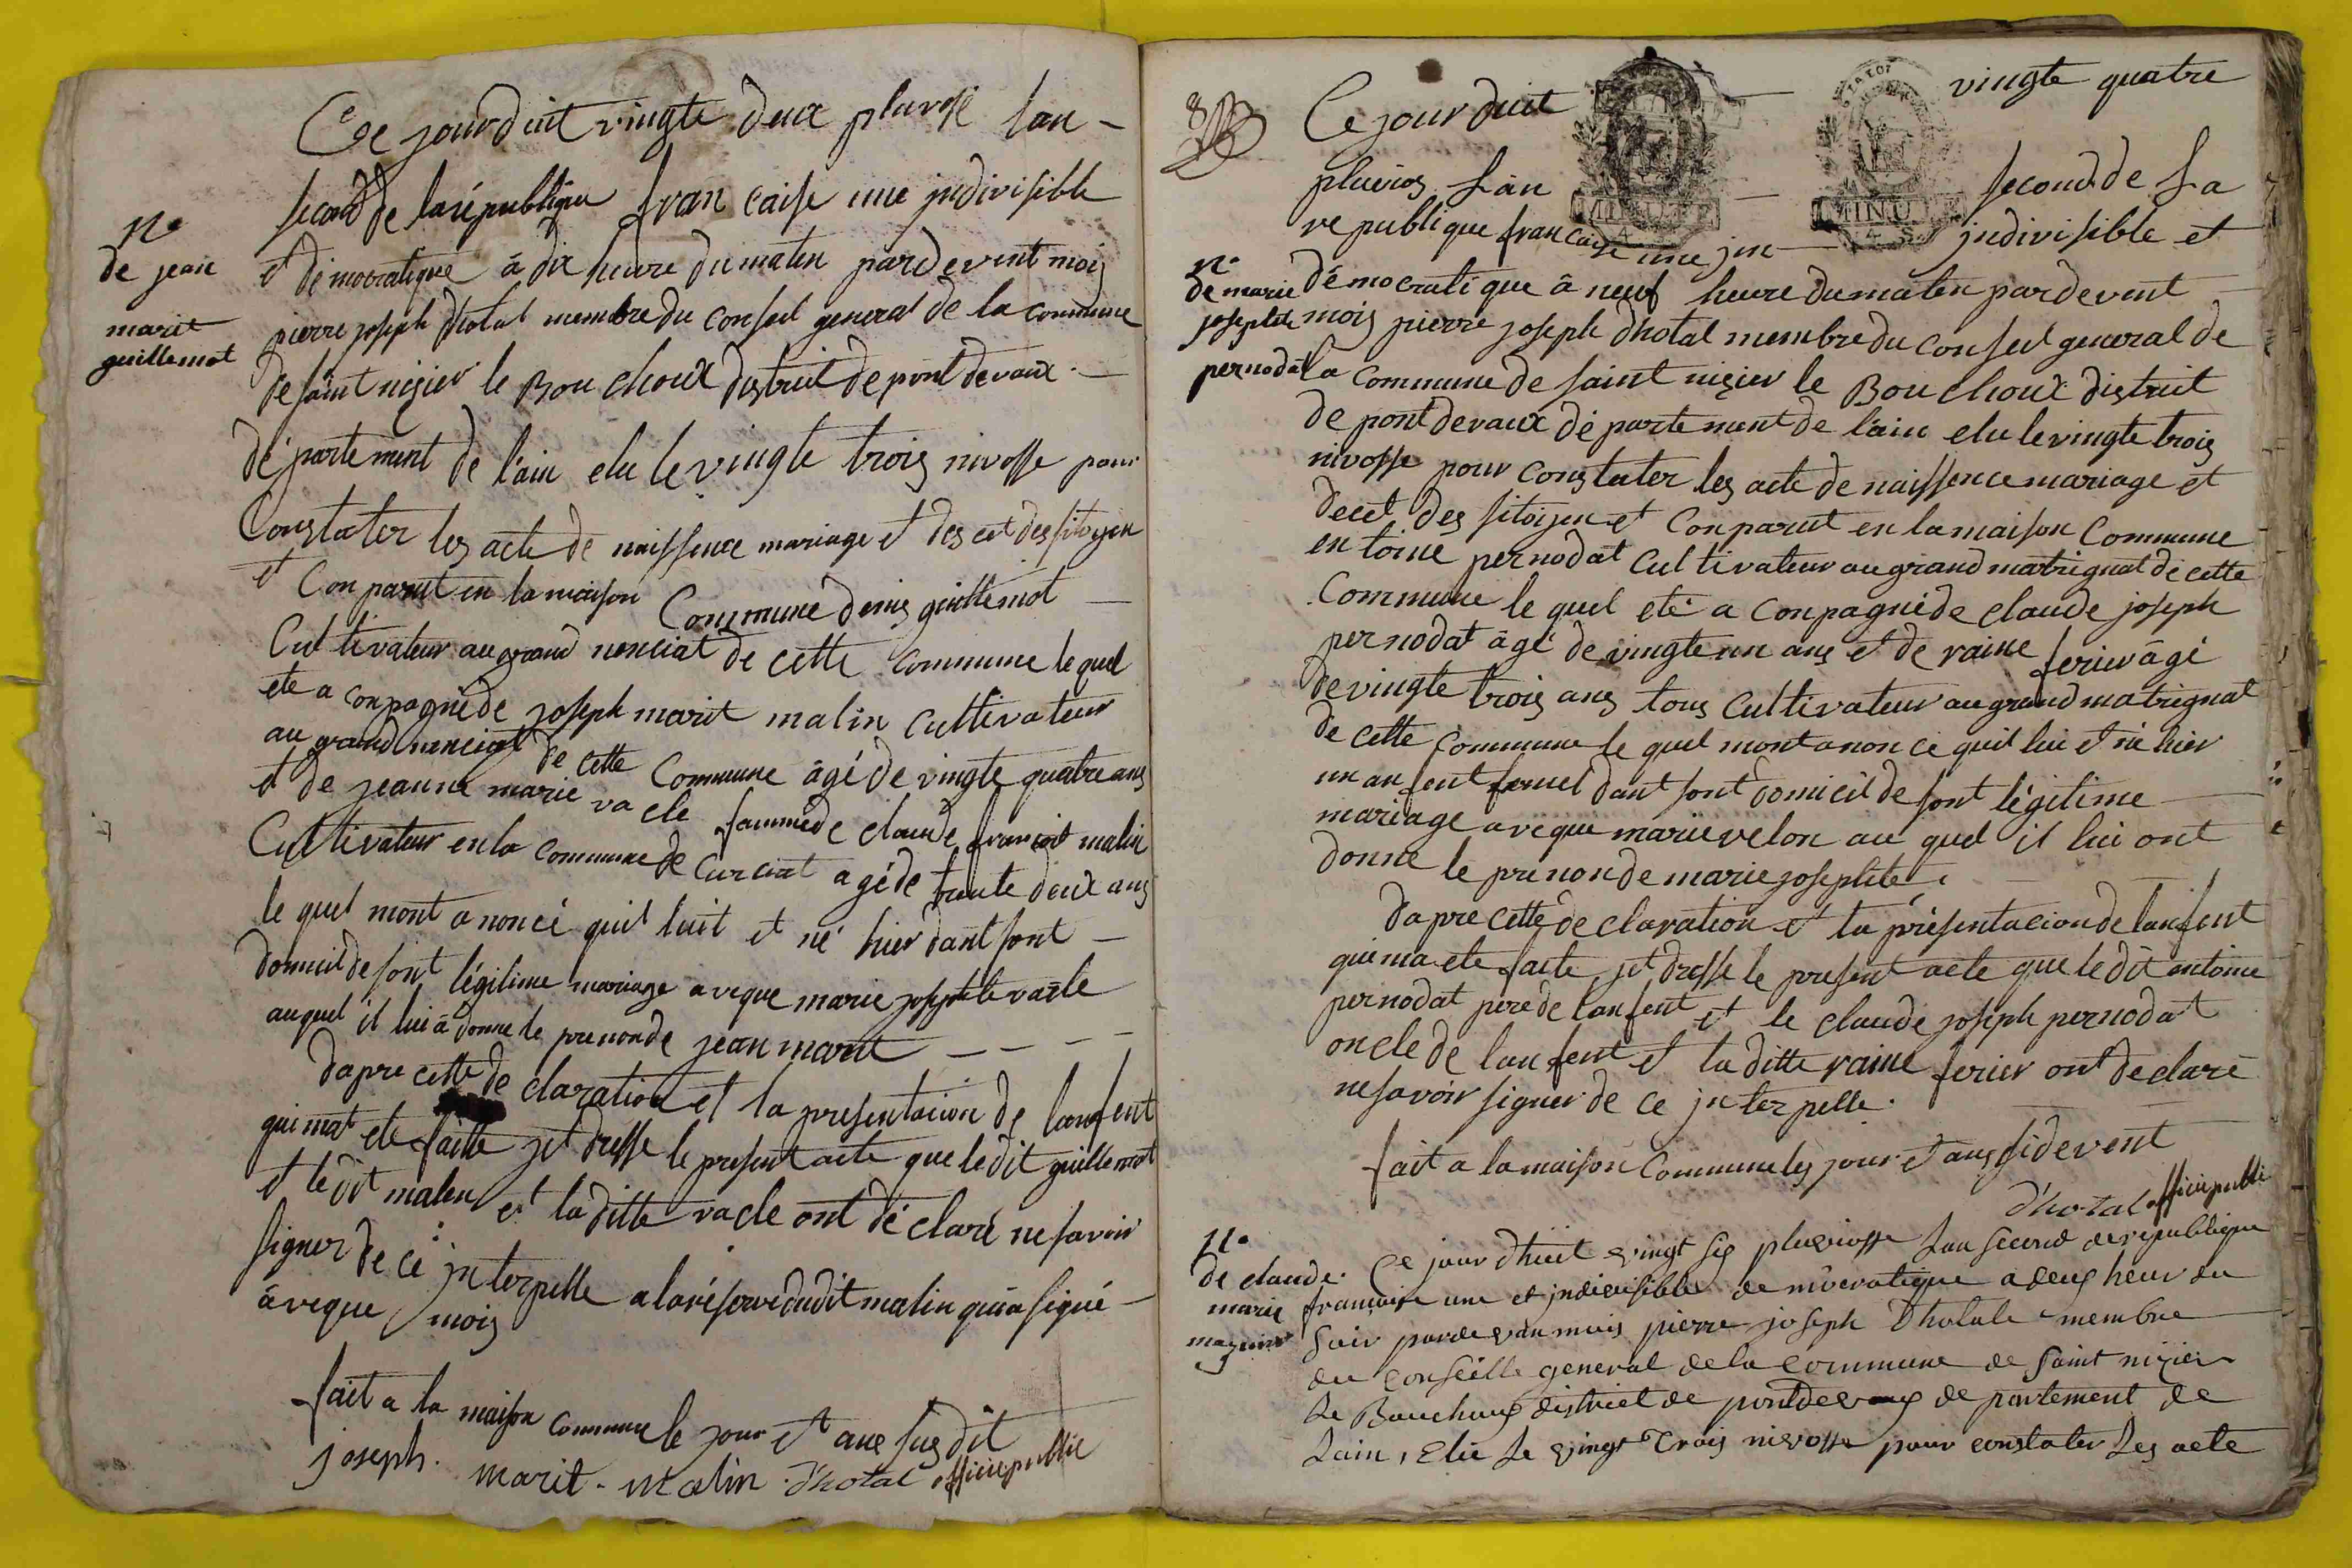 Ce jourduit vingte deux pluvose lan -
second de la république francaise une jndivisible
et démocratique à dix heure du matin pardevent mois
pierre joseph dhotal membre du conseil general de la commune
de saint nizier le Bouchoux district de pont devaux
département de l'ain elu le vingte trois nivosse pour
Constater les acte de naissence mariage et des cet des sitoyen
et Conparut en la maison Commune denis guillemot
Cultivateur au grand nonciat de cette Commune le quel
ete a conpagné de joseph marit malin cultivateur
au grand nonciat de cette Commune âgé de vingte quatre ans
et de jeanne marie vacle famme de claude francoit malin
Cultivateur en la commune de Curciat agé de trente deux ans
le quel mont anoncé quil luit et né hier dant sont
domicil de sont légitime mariage aveque marie josephte vacle
auquel il lui à donne le prenon de jean marit
n°
de jean
marit
guillemot
dapre cette de claration et la presentacion de lanfent
qui mat ete faitte jet dresse le present acte que le dit guillemot
et le dit malin et la ditte vacle ont déclaré ne savoir
signer de ce jnterpelle a la réserve dudit malin qui a signé
àveque mois
fait a la maison Commune le jour et ans susdit
joseph. marit. malin dhotal officié public
8
Ce jour duit vingte quatre
pluvios Lan second de La
republique francaise une jn jndivisible et
MINUTE
MINUTE
démocratique â neuf heure du maten pardevent
mois pierre joseph dhotal membre du conseil general de
la commune de saint nizier le Bouchoux distruit
de pont devaux département de l'ain elu le vingte trois
nivosse pour constater les acte de naissence mariage et
decet des sitoyen et Conparut en la maison Commune
entoine pernodat Cultivateur au grand matrignat de cette
Commune le quel eté a conpagné de claude joseph
pernodat âgé de vingte un ans et de raine ferier âgé
de vingte trois ans tous Cultivateur au grand matrignat
de cette commune le quel mont anoncé quil lui et né hier
un anfent femel dant sont domicil de sont légitime
mariage aveque marie velon au quel il lui ont
donne le prenon de marie josephte.
n°
de marie
josephte
pernodat
dapre cette declaration et la présentacion de lanfent
qui ma ete faite jet dresse le present acte que le dit entoine
pernodat pere de lanfent et le claude joseph pernodat
oncle de lanfent et la ditte raine ferier ont declaré
ne savoir signer de ce jnterpelle.
fait a la maison Commune les jour et ans sidevent
dhotal officié publi
n°
de claude
marie
Ce jour dhuit vingt six pluviosse Lan second de republique
francaise une et jndivisible democratique a deux heur du
soir pardevan mois pierre joseph Dhotale membre
du conseille general de la commune de saint nizier
Le Bouchoux district de pontdevaux departement de
Lain, Elu Le vingt trois nivosse pour constater Les acte